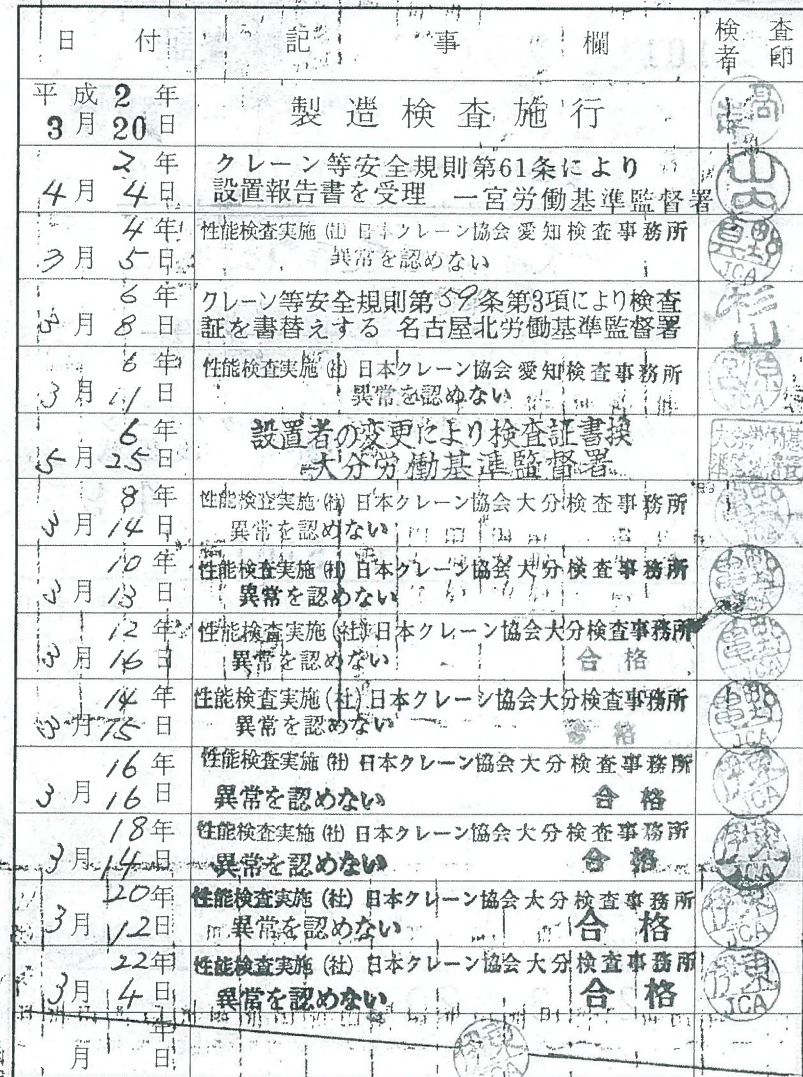 日付 記事欄 検査者印
平成2年
3月20日
製造検査施行
2年
4月4日
クレーン等安全規則第61条により
設置報告書を受理 一宮労働基準監督署
4年
3月5日
性能検査実施 (社) 日本クレーン協会愛知検査事務所
異常を認めない
JCA
6年
3月8日
クレーン等安全規則第59条第3項により検査
証を書替えする 名古屋北労働基準監督署
杉山
6年
3月11日
性能検査実施 (社) 日本クレーン協会愛知検査事務所
異常を認めない
JCA
6年
5月25日
設置者の変更により検査証書換
大分労働基準監督署
8年
3月14日
性能検査実施 (社) 日本クレーン協会大分検査事務所
異常を認めない
10年
3月13日
性能検査実施 (社) 日本クレーン協会大分検査事務所
異常を認めない
12年
3月16日
性能検査実施 (社) 日本クレーン協会大分検査事務所
異常を認めない 合格
14年
3月15日
性能検査実施 (社) 日本クレーン協会大分検査事務所
異常を認めない 合格
JCA
16年
3月16日
性能検査実施 (社) 日本クレーン協会大分検査事務所
異常を認めない 合格
JCA
18年
3月14日
性能検査実施 (社) 日本クレーン協会大分検査事務所
異常を認めない 合格
JCA
20年
3月12日
性能検査実施 (社) 日本クレーン協会大分検査事務所
異常を認めない 合格
JCA
22年
3月4日
性能検査実施 (社) 日本クレーン協会大分検査事務所
異常を認めない 合格
JCA
年
月日